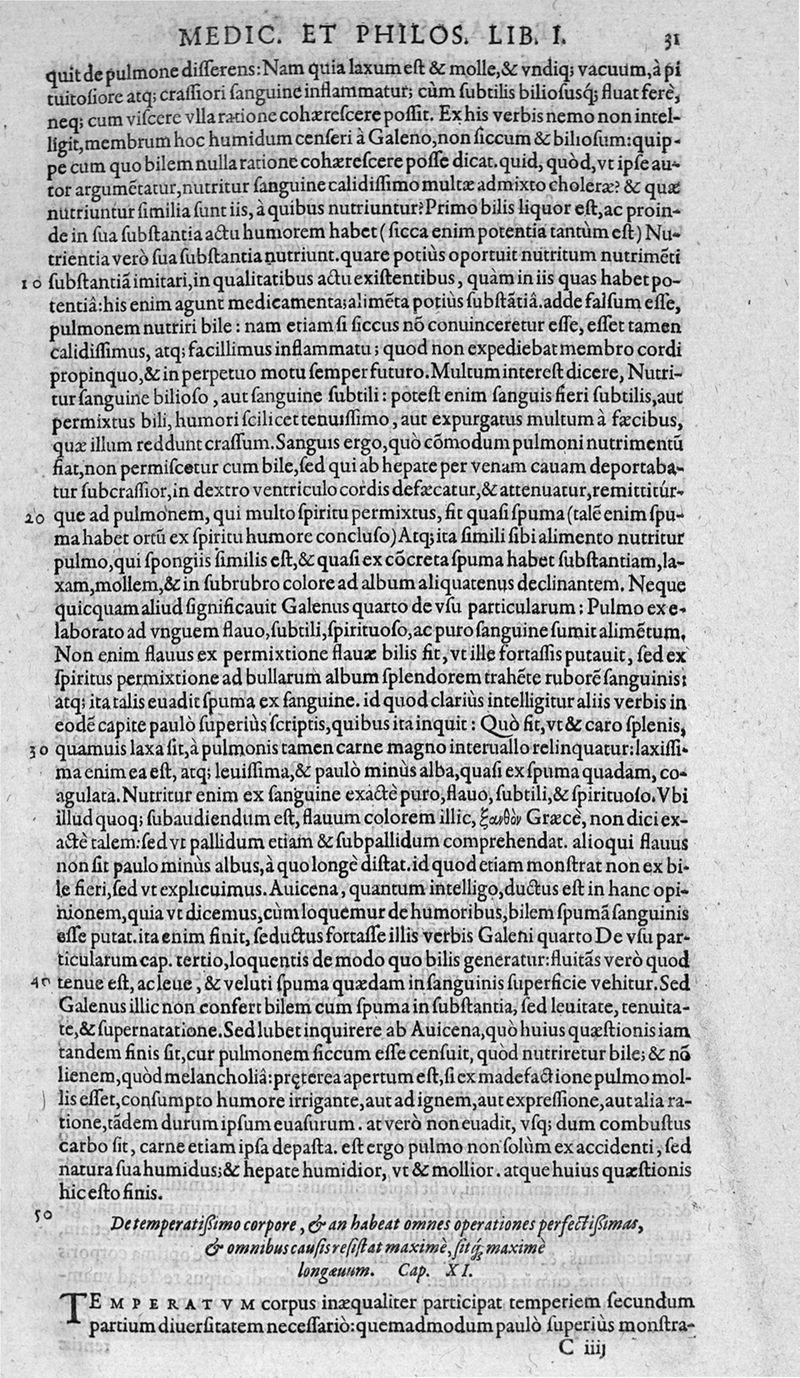 MEDIC. ET PHILOS. LIB. I. 31
quit de pulmone differens: Nam quia laxum eſt & molle, & vndiq; vacuum, à pi
tuitoſiore atq; craſſiori ſanguine inflammatur; cùm ſubtilis bilioſusq́; fluat ferè,
neq; cum viſcere vlla ratione cohæreſcere poſſit. Ex his verbis nemo non intel-
ligit, membrum hoc humidum cenſeri à Galeno, non ſiccum & bilioſum: quip-
pe cum quo bilem nulla ratione cohæreſcere poſſe dicat. quid, quòd, vt ipſe au-
tor argumẽtatur, nutritur ſanguine calidiſſimo multæ admixto choleræ? & quæ
nutriuntur ſimilia ſunt iis, à quibus nutriuntur? Primo bilis liquor eſt, ac proin-
de in ſua ſubſtantia actu humorem habet (ſicca enim potentia tantùm eſt) Nu-
trientia verò ſua ſubſtantia nutriunt. quare potiùs oportuit nutritum nutrimẽti
10 ſubſtantiã imitari, in qualitatibus actu exiſtentibus, quàm in iis quas habet po-
tentiâ: his enim agunt medicamenta; alimẽta potiùs ſubſtãtiâ. adde falſum eſſe,
pulmonem nutriri bile: nam etiam ſi ſiccus nõ conuinceretur eſſe, eſſet tamen
calidiſſimus, atq; facillimus inflammatu; quod non expediebat membro cordi
propinquo, & in perpetuo motu ſemper futuro. Multum intereſt dicere, Nutri-
tur ſanguine bilioſo, aut ſanguine ſubtili: poteſt enim ſanguis fieri ſubtilis, aut
permixtus bili, humori ſcilicet tenuiſſimo, aut expurgatus multum à fæcibus,
quæ illum reddunt craſſum. Sanguis ergo, quò cõmodum pulmoni nutrimentũ
fiat, non permiſcetur cum bile, ſed qui ab hepate per venam cauam deportaba-
tur ſubcraſſior, in dextro ventriculo cordis defæcatur, & attenuatur, remittitúr-
20 que ad pulmonem, qui multo ſpiritu permixtus, fit quaſi ſpuma (talẽ enim ſpu-
ma habet ortũ ex ſpiritu humore concluſo) Atq; ita ſimili ſibi alimento nutritur
pulmo, qui ſpongiis ſimilis eſt, & quaſi ex cõcreta ſpuma habet ſubſtantiam, la-
xam, mollem, & in ſubrubro colore ad album aliquatenus declinantem. Neque
quicquam aliud ſignificauit Galenus quarto de vſu particularum: Pulmo ex e-
laborato ad vnguem flauo, ſubtili, ſpirituoſo, ac puro ſanguine ſumit alimẽtum.
Non enim flauus ex permixtione flauæ bilis fit, vt ille fortaſſis putauit, ſed ex
ſpiritus permixtione ad bullarum album ſplendorem trahẽte ruborẽ ſanguinis:
atq; ita talis euadit ſpuma ex ſanguine. id quod clariùs intelligitur aliis verbis in
eodẽ capite paulò ſuperiùs ſcriptis, quibus ita inquit: Quò fit, vt & caro ſplenis,
30 quamuis laxa ſit, à pulmonis tamen carne magno interuallo relinquatur: laxiſſi-
ma enim ea eſt, atq; leuiſſima, & paulò minùs alba, quaſi ex ſpuma quadam, co-
agulata. Nutritur enim ex ſanguine exactè puro, flauo, ſubtili, & ſpirituoſo. Vbi
illud quoq; ſubaudiendum eſt, flauum colorem illic, ξανθὸν Græcè, non dici ex-
actè talem: ſed vt pallidum etiam & ſubpallidum comprehendat. alioqui flauus
non ſit paulo minùs albus, à quo longè diſtat. id quod etiam monſtrat non ex bi-
le fieri, ſed vt explicuimus. Auicena, quantum intelligo, ductus eſt in hanc opi-
nionem, quia vt dicemus, cùm loquemur de humoribus, bilem ſpumã ſanguinis
eſſe putat. ita enim finit, ſeductus fortaſſe illis verbis Galeni quarto De vſu par-
ticularum cap. tertio, loquentis de modo quo bilis generatur: fluitãs verò quod
40 tenue eſt, ac leue, & veluti ſpuma quædam in ſanguinis ſuperficie vehitur. Sed
Galenus illic non confert bilem cum ſpuma in ſubſtantia, ſed leuitate, tenuita-
te, & ſupernatatione. Sed lubet inquirere ab Auicena, quò huius quæſtionis iam
tandem finis ſit, cur pulmonem ſiccum eſſe cenſuit, quòd nutriretur bile; & nõ
lienem, quòd melancholiâ: prętera apertum eſt, ſi ex madefactione pulmo mol-
lis eſſet, conſumpto humore irrigante, aut ad ignem, aut expreſſione, aut alia ra-
tione, tãdem durum ipſum euaſurum. at verò non euadit, vſq; dum combuſtus
carbo fit, carne etiam ipſa depaſta. eſt ergo pulmo non ſolùm ex accidenti, ſed
natura ſua humidus; & hepate humidior, vt & mollior. atque huius quæſtionis
hic eſto finis.
50
De temperatiſſimo corpore, & an habeat omnes operationes perfectiſſimas,
& omnibus cauſis reſiſtat maximè, ſitq́; maximè
longæuum. Cap. XI.
TEMPERATVM corpus inæqualiter participat temperiem ſecundum
partium diuerſitatem neceſſariò: quemadmodum paulò ſuperiùs monſtra-
C iiij